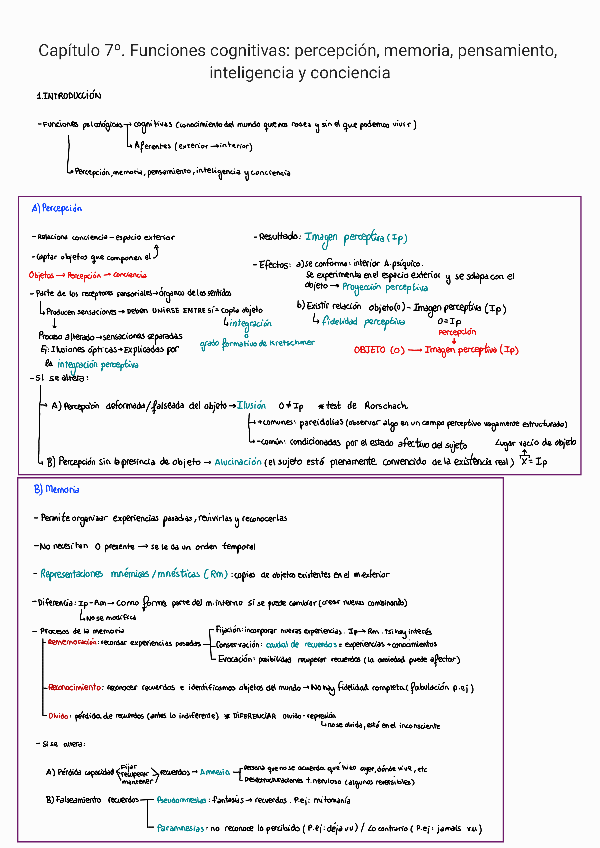 Capítulo 7º. Funciones cognitivas: percepción, memoria, pensamiento,
inteligencia y conciencia
1.INTRODUCCIÓN
-Funciones psicológicas → cognitivas (conocimiento del mundo que nos rodea y sin el que podemos vivir)
↳ Aferentes (exterior → interior)
↳ Percepción, memoria, pensamiento, inteligencia y conciencia
A) Percepción
-Relaciona conciencia - espacio exterior
-Captar objetos que componen el
Objetos → Percepción → conciencia
-Parte de los receptores sensoriales → órganos de los sentidos
↳ Producen sensaciones → Deben UNIRSE ENTRE SÍ = copia objeto
↳ integración
Proceso alterado → sensaciones separadas
Ej: Ilusiones ópticas → Explicadas por
la integración perceptiva
grado formativo de Kretschmer
-Resultado: Imagen perceptiva (Ip)
-Efectos: a) se conforma: interior A.psíquico.
Se experimenta en el espacio exterior y se solapa con el
objeto → Proyección perceptiva
b) Existir relación objeto(O) - Imagen perceptiva (Ip)
↳ fidelidad perceptiva O=Ip
Percepción
OBJETO (O) → Imagen perceptiva (Ip)
-Si se altera:
A) Percepción deformada/falseada del objeto → Ilusión O≠Ip *test de Rorschach
↳ +comunes: pareidolias (observar algo en un campo perceptivo vagamente estructurado)
↳ -común: condicionadas por el estado afectivo del sujeto
Lugar vacío de objeto
B) Percepción sin la presencia de objeto → Alucinación (el sujeto está plenamente convencido de la existencia real) X = Ip
B) Memoria
- Permite organizar experiencias pasadas, revivirlas y reconocerlas
-No necesitan O presente → se le da un orden temporal
- Representaciones mnémicas/mnésticas (Rm): copias de objetos existentes en el m.exterior
-Diferencia: Ip-Rm → Como forma parte del m.interno sí se puede cambiar (crear nuevas combinando)
↳ No se modifica
- Procesos de la memoria
Rememoración: recordar experiencias pasadas
Fijación: incorporar nuevas experiencias. Ip → Rm. ↑si hay interés
Conservación: caudal de recuerdos = experiencias + conocimientos
Evocación: posibilidad recuperar recuerdos (la ansiedad puede afectar)
Reconocimiento: reconocer recuerdos e identificamos objetos del mundo → No hay fidelidad completa (fabulación p.ej)
Olvido: pérdida de recuerdos (antes lo indiferente) * DIFERENCIAR olvido - represión
↳ no se olvida, está en el inconsciente
- Si se altera:
A) Pérdida capacidad fijar recuperar mantener recuerdos → Amnesia
persona que no se acuerda qué hizo ayer, dónde vive, etc
Desestructuraciones t.nervioso (algunas reversibles)
B) Falseamiento recuerdos
Pseudomnesias: fantasías → recuerdos. P.ej: mitomanía
Paramnesias: no reconoce lo percibido (P.ej: déjà vu) / Lo contrario (P.ej: jamais vu)